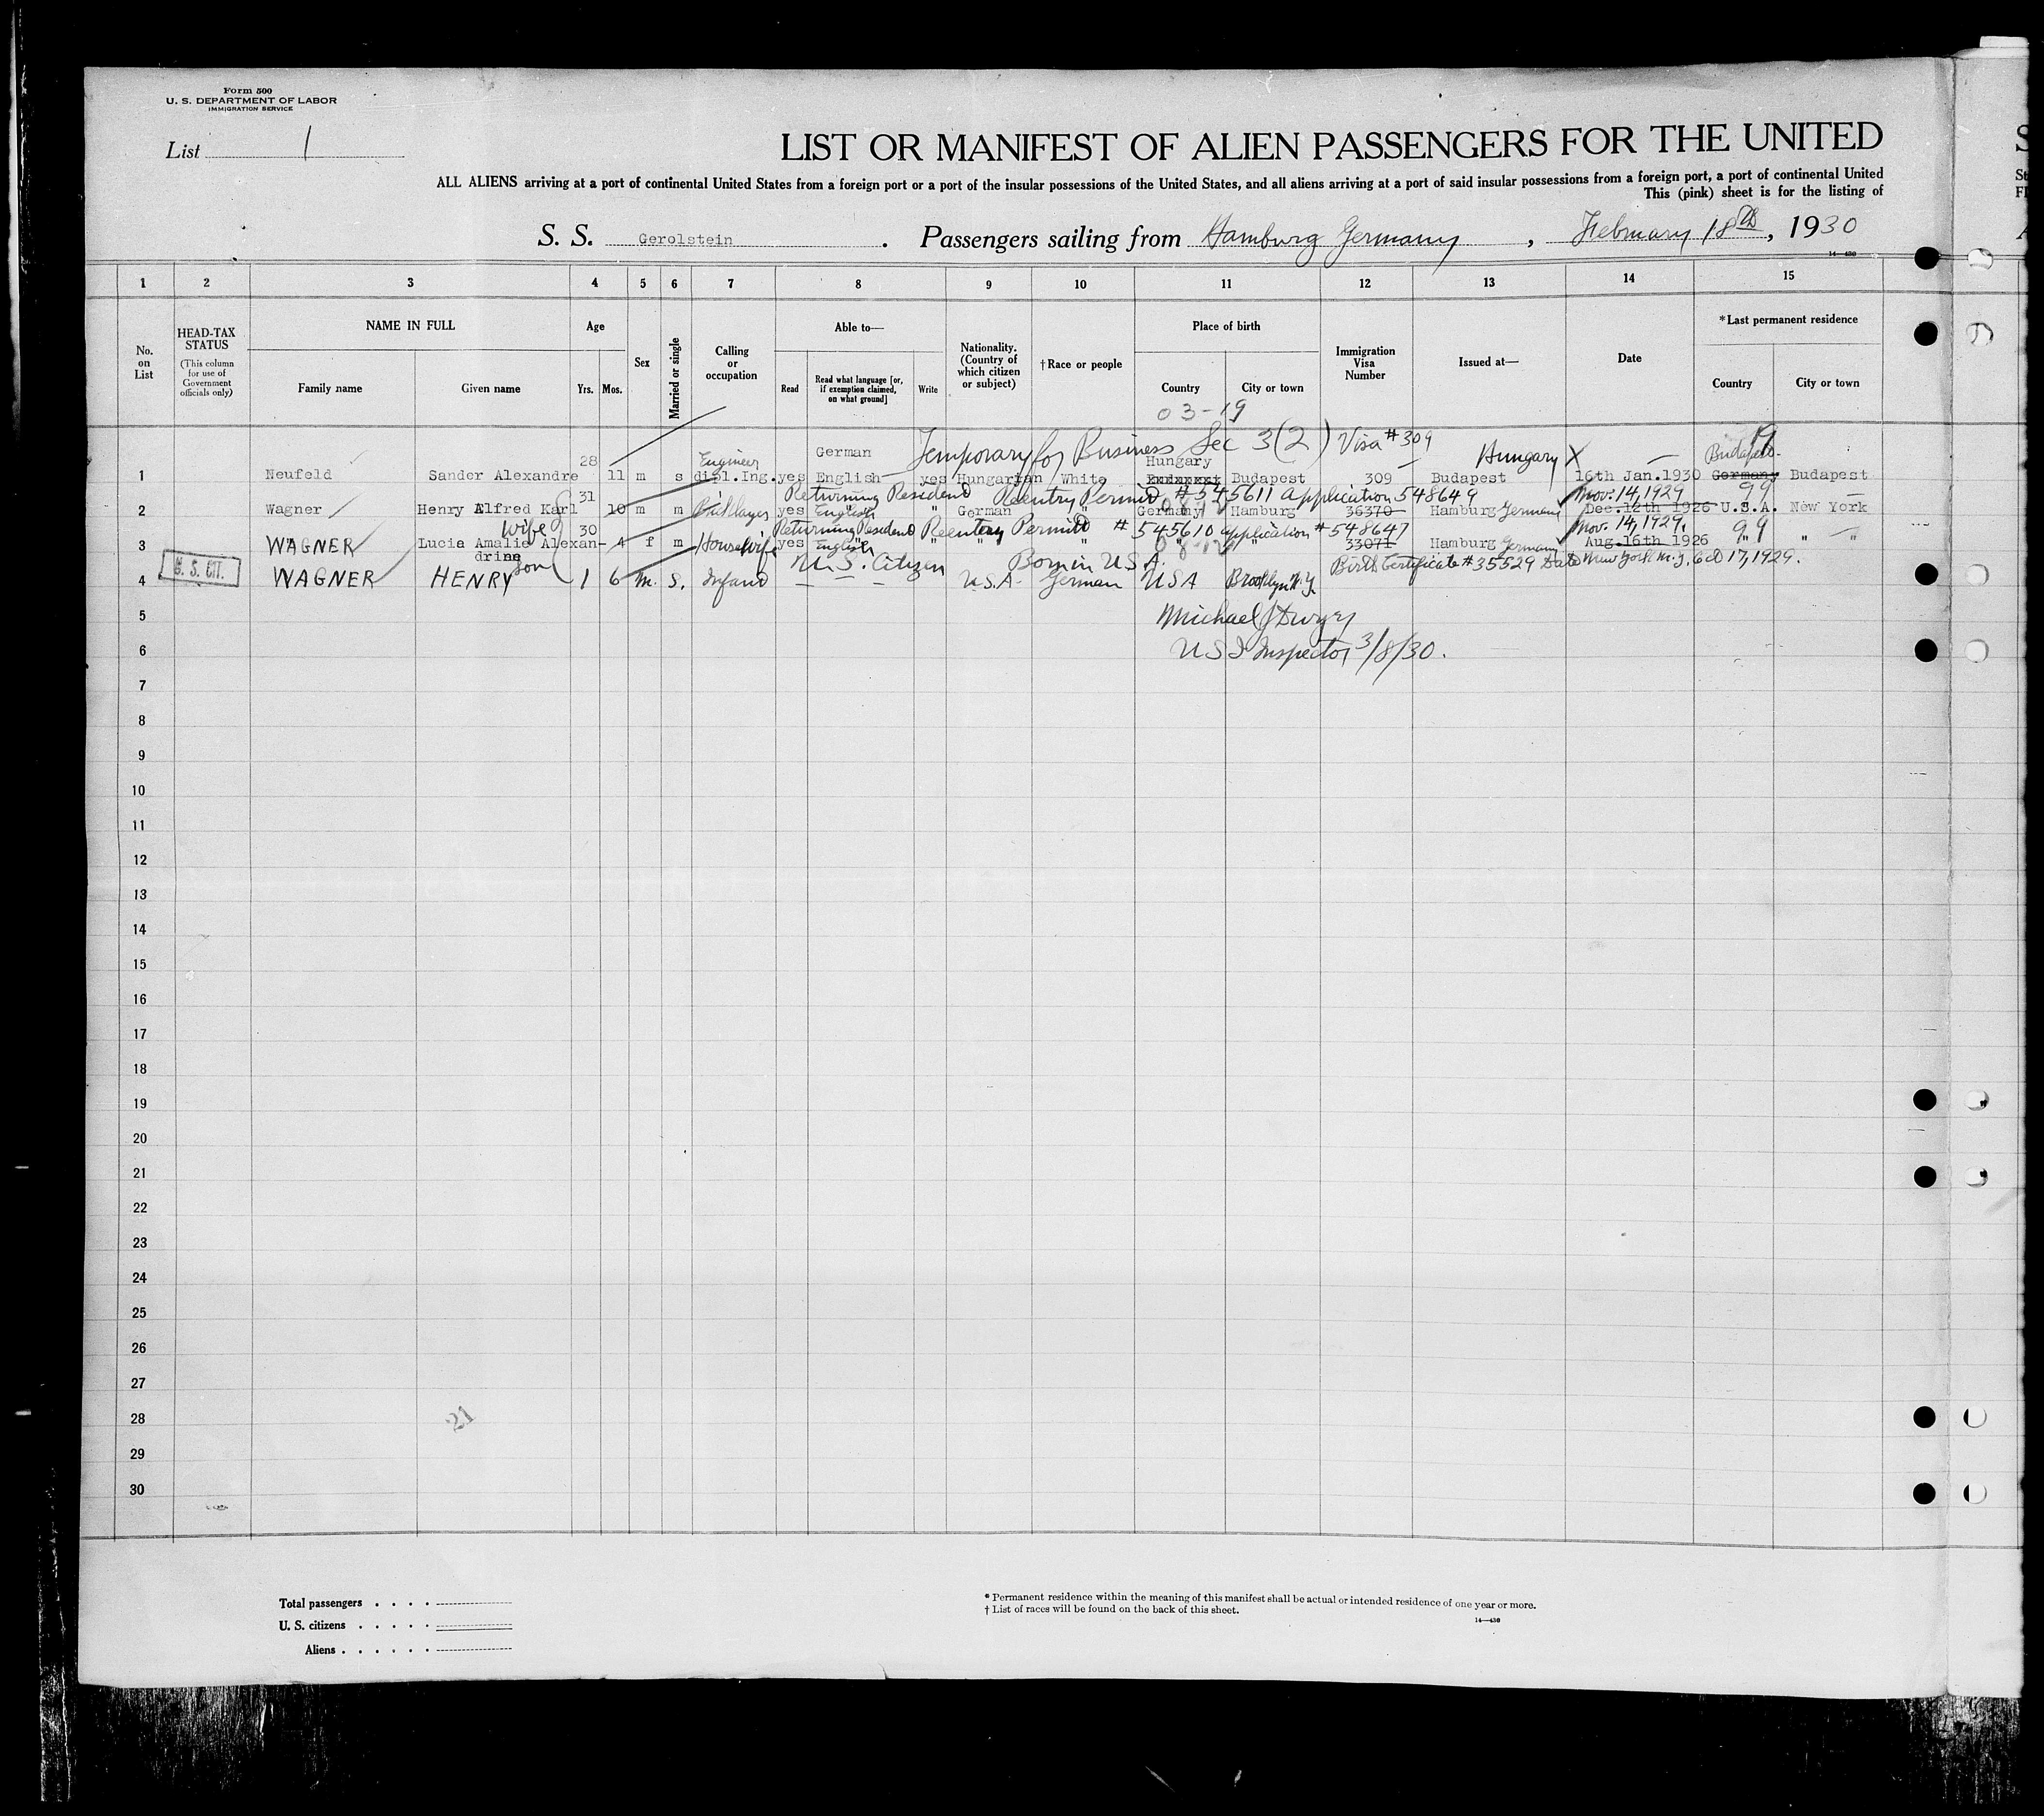 Form 500
U. S. DEPARTMENT OF LABOR
IMMIGRATION SERVICE
List 1
LIST OR MANIFEST OF ALIEN PASSENGERS FOR THE UNITED
ALL ALIENS arriving at a port of continental United States from a foreign port or a port of the insular possessions of the United States, and all aliens arriving at a port of said insular possessions from a foreign port, a port of continental United
This (pink) sheet is for the listing of
S. S. Gerolstein . Passengers sailing from Hamburg Germany , February 18th, 1930
14—430
1 2 3 4 5 6 7 8 9 10 11 12 13 14 15
No. on List
HEAD-TAX STATUS
(This column for use of Government officials only)
NAME IN FULL
Family name Given name
Age
Yrs. Mos.
Sex
Married or single
Calling or occupation
Able to—
Read Read what language [or, if exemption claimed, on what ground] Write
Nationality. (Country of which citizen or subject)
†Race or people
Place of birth
Country City or town
Immigration Visa Number
Issued at—
Date
*Last permanent residence
Country City or town
03-19
German Temporary for Business Sec 3(2) Visa #309 Hungary X 19
28 Engineer Hungary Budapest
1 Neufeld Sander Alexandre 11 m s dipl.Ing. yes English yes Hungarian White Budapest 309 Budapest 16th Jan.1930 Germany Budapest
31 Returning Resident Reentry Permit #545611 Application 548649 Nov. 14, 1929 99
2 Wagner Henry Alfred Karl 10 m m Bricklayer yes English " German " Germany Hamburg 36370 Hamburg Germany Dec. 12th 1926 U.S.A. New York
wife 30 Returning Resident Reentry Permit # 545610 Application #548647 Nov. 14, 1929. 99
3 WAGNER Lucie Amalie Alexan- 4 f m Housewife yes English " " " " " 33071 Hamburg Germany Aug. 16th 1926 " "
drine
son U.S. Citizen Born in U.S.A. Birth Certificate #35529 Date New York N.Y. 17, 1929.
U. S. CIT.
4 WAGNER HENRY 1 6 m. S. Infant — — — U.S.A. German USA Brooklyn N.Y.
5 Michael J Dwyer
6 USI Inspector 3/8/30.
7
8
9
10
11
12
13
14
15
16
17
18
19
20
21
22
23
24
25
26
27
28 21
29
30
Total passengers . . . .
U. S. citizens . . . . .
Aliens . . . . . .
* Permanent residence within the meaning of this manifest shall be actual or intended residence of one year or more.
† List of races will be found on the back of this sheet.
14—430